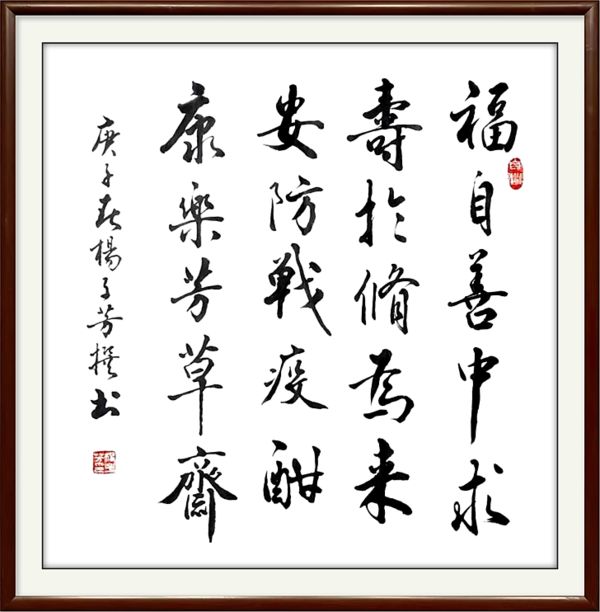 福自善中求
壽於脩為来
安防戰疫酣
康樂芳草齋
庚子春楊子芳撰书